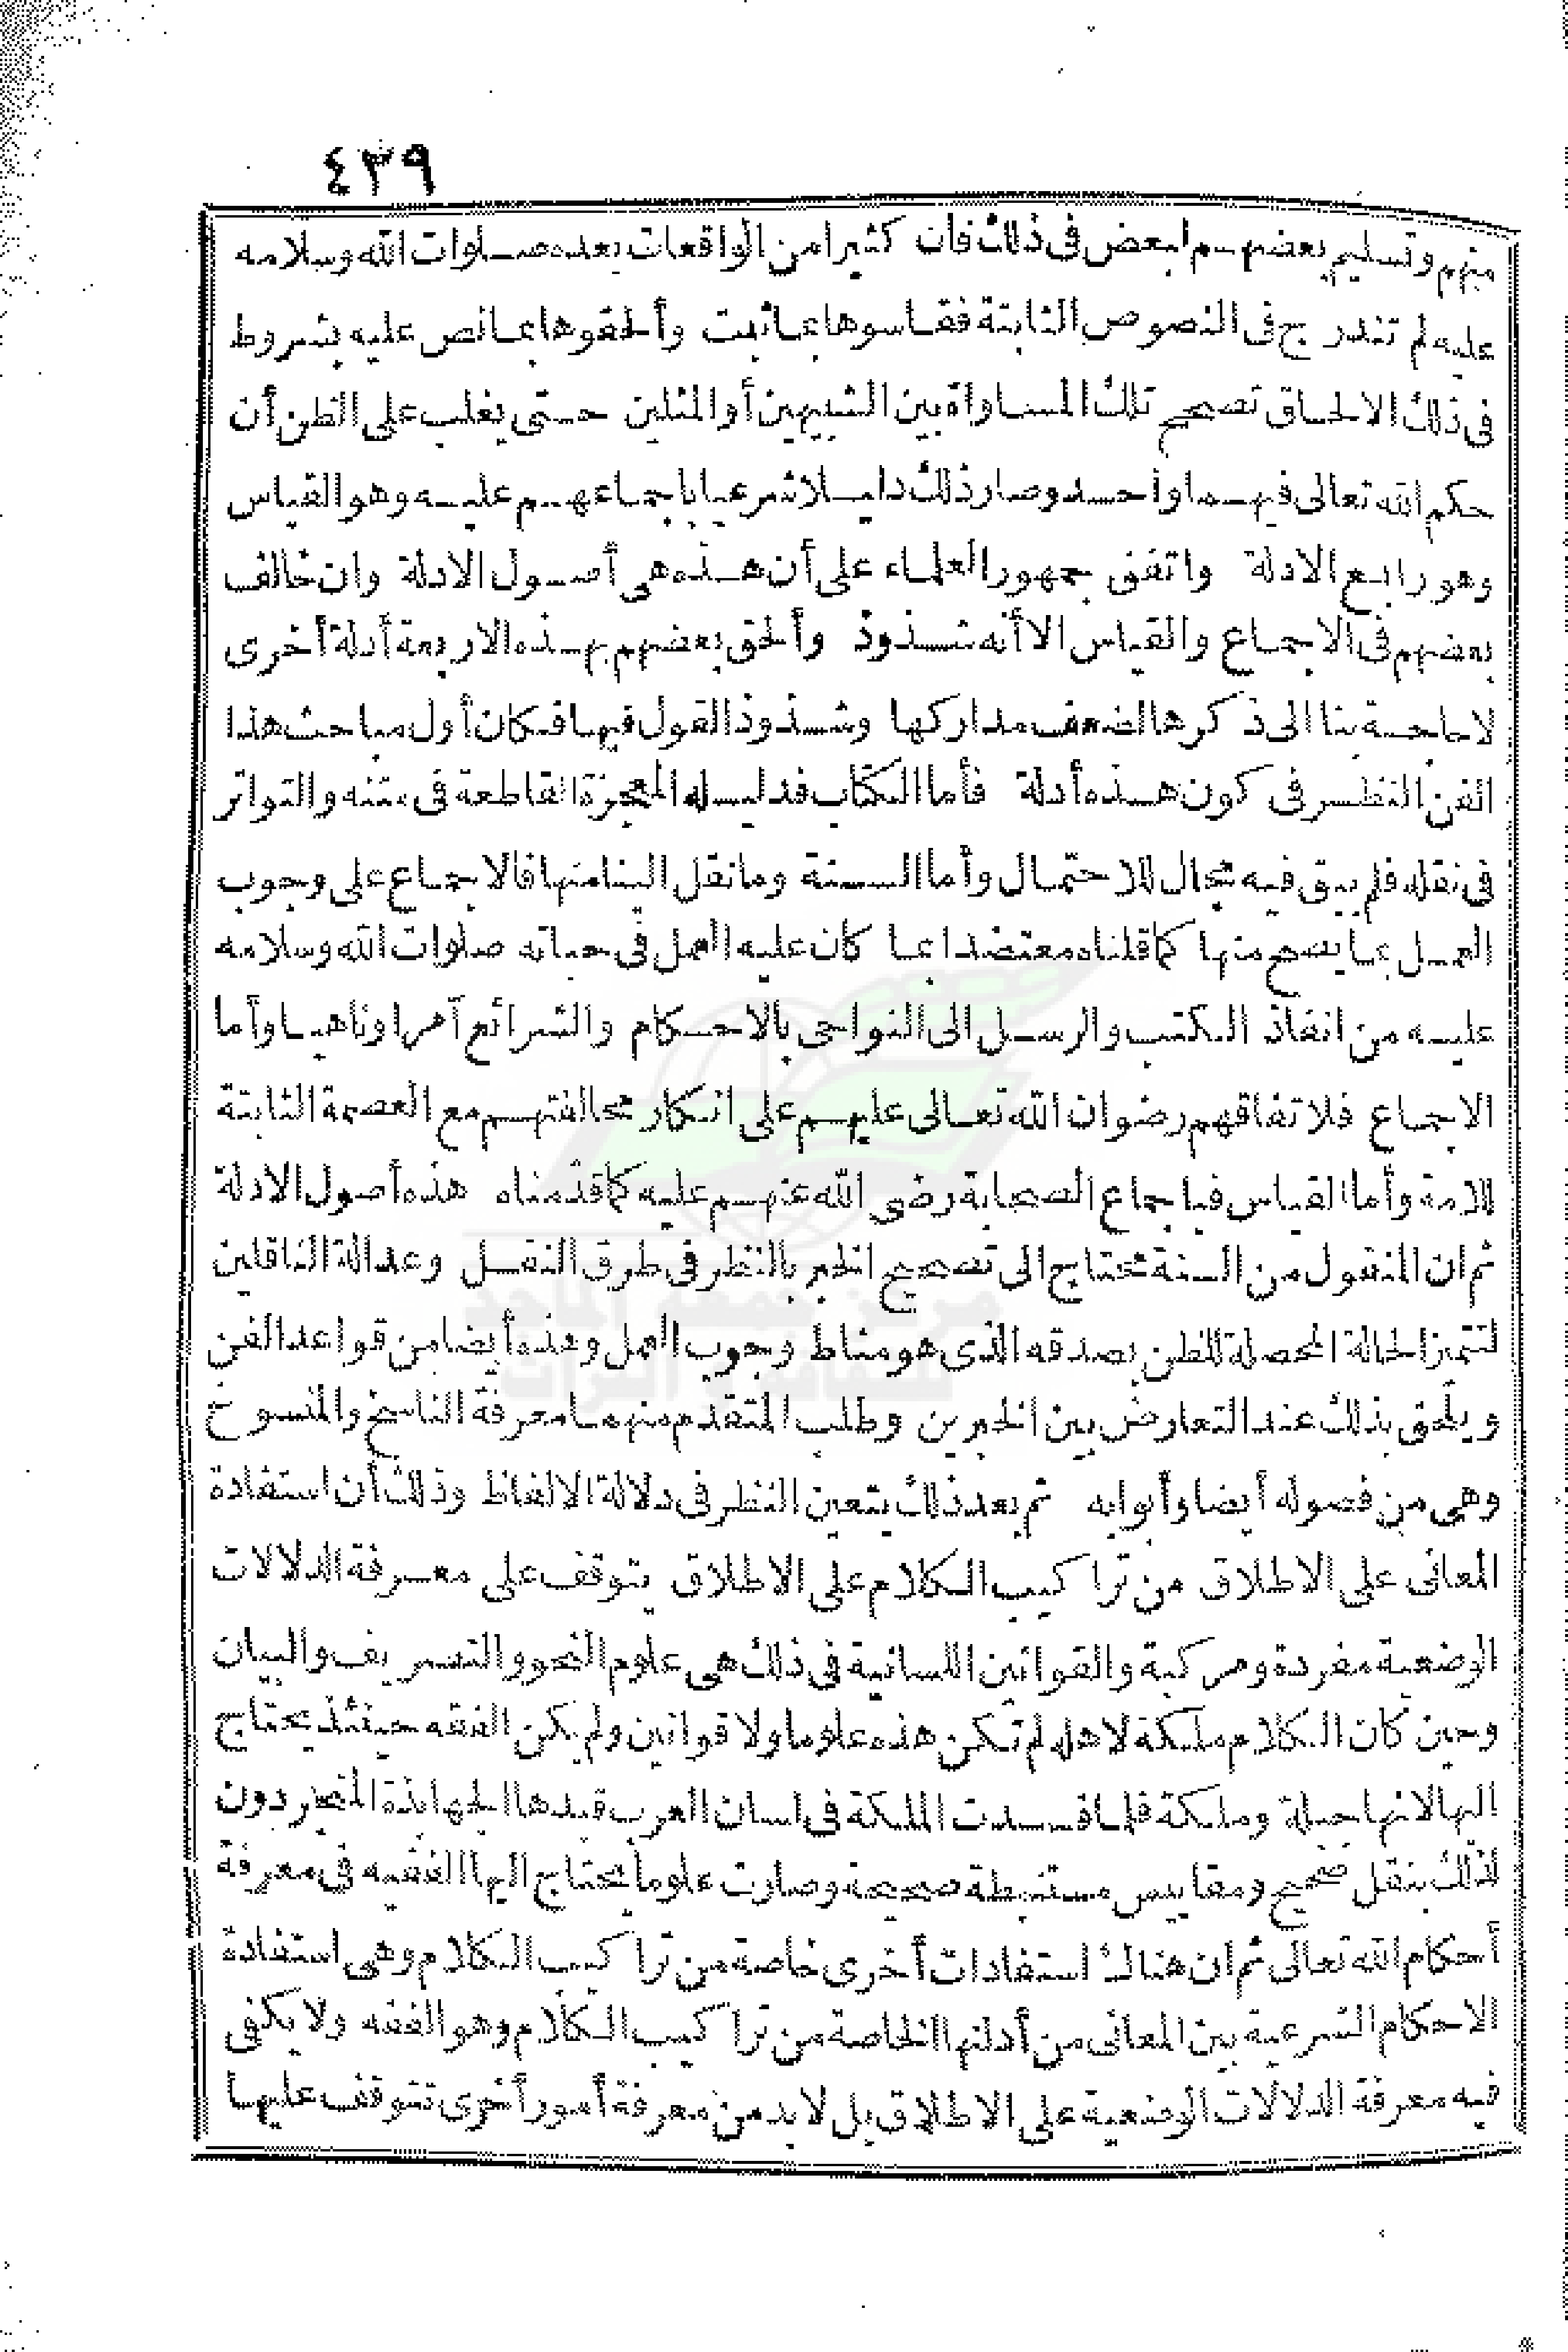 ٤٣٩
منهم وتسليم بعضهم لبعض فى ذلك فان كثيرا من الواقعات بعده صلوات الله وسلامه
عليه لم تندرج فى النصوص الثابتة فقاسوها بما ثبت وألحقوها بما نص عليه بشروط
فى ذلك الالحاق تصحح تلك المساواة بين الشبيهين أو المثلين حتى يغلب على الظن أن
حكم الله تعالى فيهما واحد وصار ذلك دليلا شرعيا باجماعهم عليه وهو القياس
وهو رابع الادلة واتفق جمهور العلماء على أن هذه هى أصول الادلة وان خالف
بعضهم فى الاجماع والقياس الا أنه شذوذ وألحق بعضهم بهذه الاربعة أدلة أخرى
لا حاجة بنا الى ذكرها لضعف مداركها وشذوذ القول فيها فكان أول مباحث هذا
الفن النظر فى كون هذه أدلة فأما الكتاب فدليله المعجزة القاطعة فى متنه والتواتر
فى نقله فلم يبق فيه مجال للاحتمال وأما السنة وما نقل الينا منها فالاجماع على وجوب
العمل بما يصح منها كما قلناه معتضدا بما كان عليه العمل فى حياته صلوات الله وسلامه
عليه من انفاذ الكتب والرسل الى النواحى بالاحكام والشرائع آمرا وناهيا وأما
الاجماع فلاتفاقهم رضوان الله تعالى عليهم على انكار مخالفتهم مع العصمة الثابتة
للامة وأما القياس فباجماع الصحابة رضى الله عنهم عليه كما قدّمناه هذه أصول الادلة
ثم ان المنقول من السنة محتاج الى تصحيح الخبر بالنظر فى طرق النقل وعدالة الناقلين
لتتميز الحالة المحصلة للظن بصدقه الذى هو مناط وجوب العمل وهذه أيضا من قواعد الفن
ويلحق بذلك عند التعارض بين الخبرين وطلب المتقدّم منهما معرفة الناسخ والمنسوخ
وهى من فصوله أيضا وأبوابه ثم بعد ذلك يتعين النظر فى دلالة الالفاظ وذلك أن استفادة
المعانى على الاطلاق من تراكيب الكلام على الاطلاق يتوقف على معرفة الدلالات
الوضعية مفردة ومركبة والقوانين اللسانية فى ذلك هى علوم النحو والتصريف والبيان
وحين كان الكلام ملكة لاهله لم تكن هذه علوما ولا قوانين ولم يكن الفقه حينئذ يحتاج
اليها لانها جبلة وملكة فلما فسدت الملكة فى لسان العرب قيدها الجهابذة المتجردون
لذلك بنقل صحيح ومقاييس مستنبطة صحيحة وصارت علوما يحتاج اليها الفقيه فى معرفة
أحكام الله تعالى ثم ان هناك استفادات أخرى خاصة من تراكيب الكلام وهى استفادة
الاحكام الشرعية بين المعانى من أدلتها الخاصة من تراكيب الكلام وهو الفقه ولا يكفى
فيه معرفة الدلالات الوضعية على الاطلاق بل لا بد من معرفة أمور أخرى تتوقف عليها
مركز جمعة الماجد
للثقافة و التراث